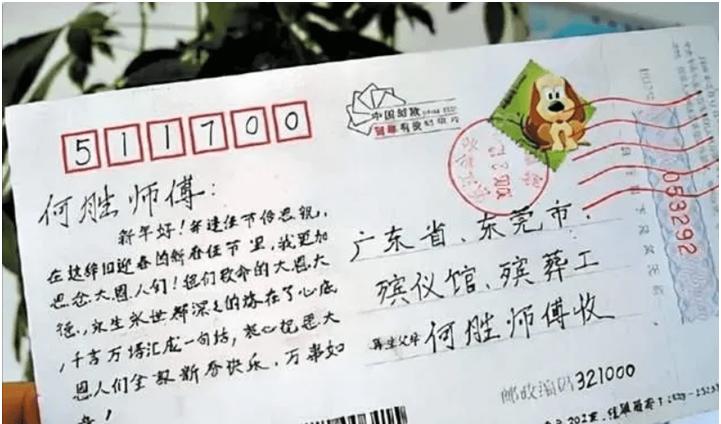 511700
中国邮政
贺年有奖
何胜师傅：
新年好！每逢佳节倍思亲，
在这辞旧迎春的新春佳节里，我更加
思念大恩人们！您们救命的大恩大
德，永生永世都深深的烙在了心底
，千言万语汇成一句话，衷心祝恩大
恩人们全家新春快乐，万事如
意！
广东省、东莞市、
殡仪馆、殡葬工
再生父母 何胜师傅收
邮政编码 321000
053292